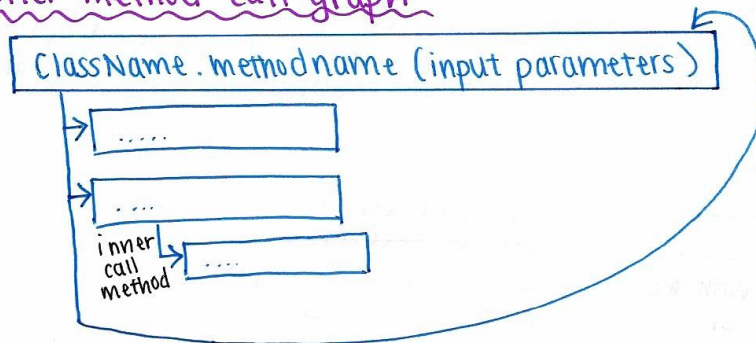 method call graph
ClassName.methodname (input parameters)
.....
....
inner
call
method
....